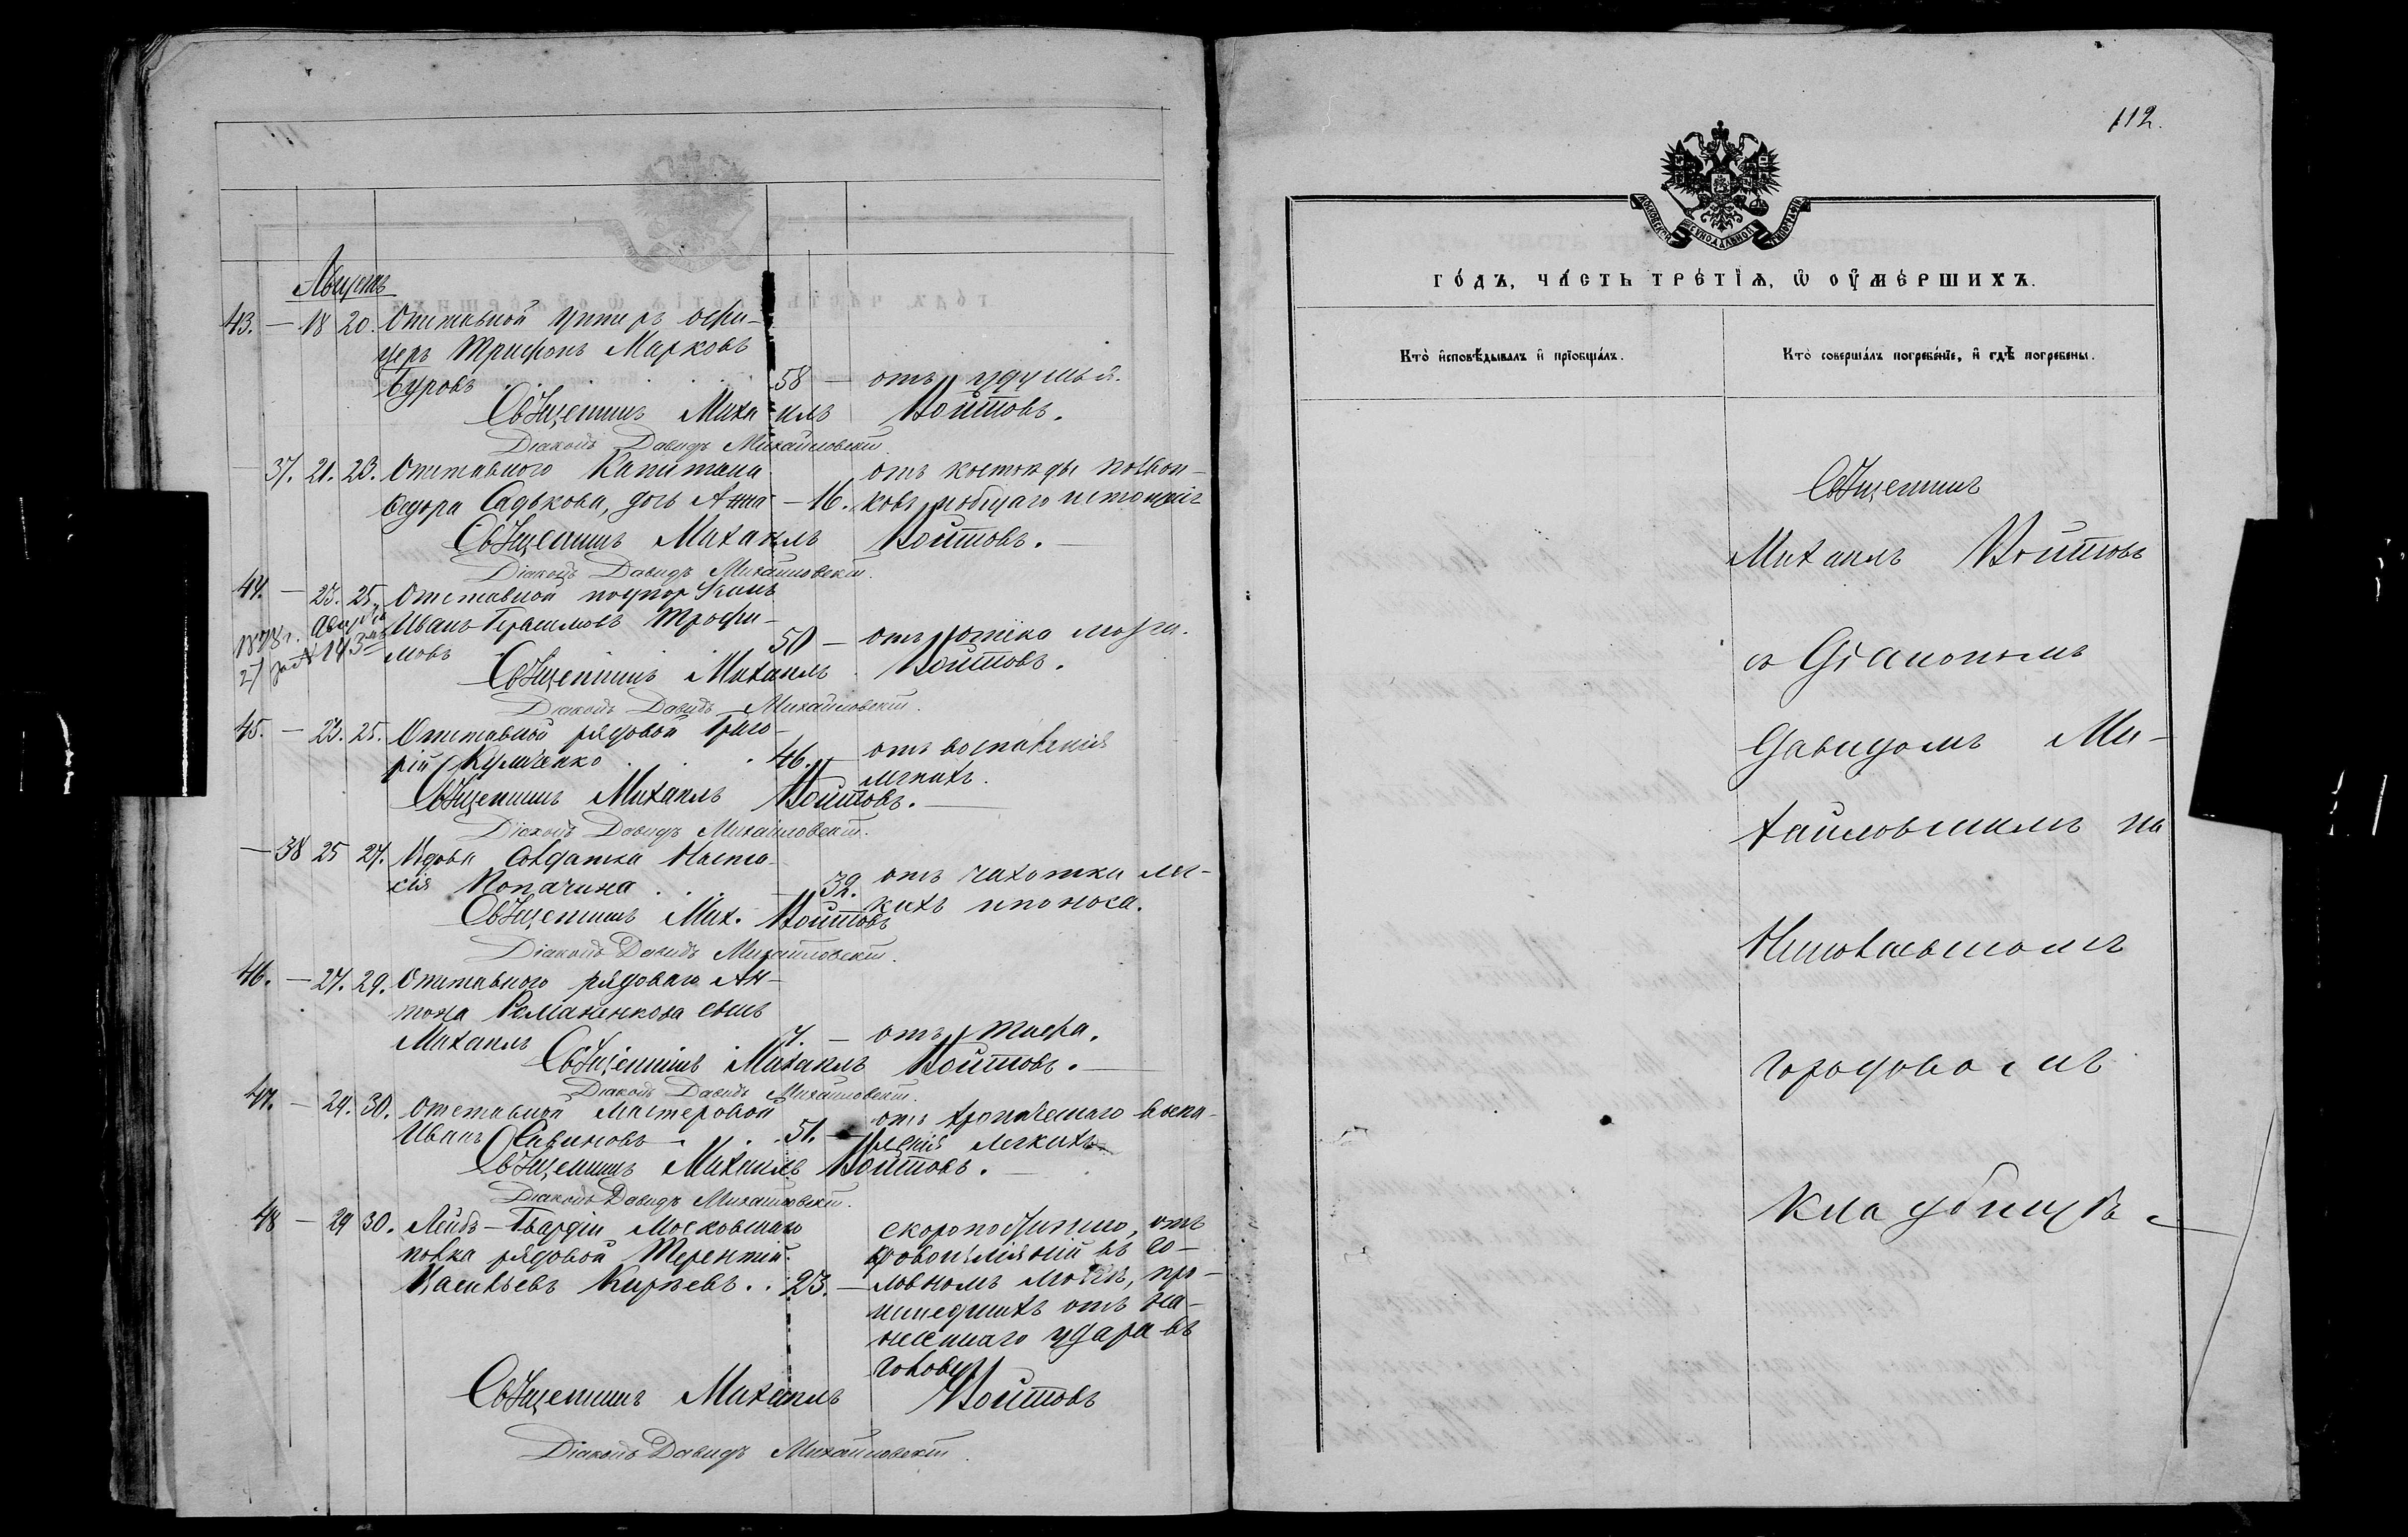 Августъ
43. — 18 20. Отставной Унтеръ офи-
церъ Трифонъ Марковъ
Буровъ . . . . 58 — отъ удушья.
Священникъ Михаилъ Войтовъ.
Діаконъ Давидъ Михайловскій
37. 21. 23. Отставного Капитана отъ костоѣды позвон-
Ѳедора Садькова, дочь Анна — 16. ковъ и общаго истощенія
Священникъ Михаилъ Войтовъ.
Діаконъ Давидъ Михайловскій.
44. — 23. 25. Отставной
1878 г. Августа Иванъ Герасимовъ Трофи-
27 за № 143 мовъ 50 — отъ отека мозга.
Священникъ Михаилъ Войтовъ.
Діаконъ Давидъ Михайловскій.
45. — 23. 25. Отставной рядовой Григо-
рій . . . 46. — отъ воспаленія
легкихъ.
Священникъ Михаилъ Войтовъ.
Діаконъ Давидъ Михайловскій.
— 38 25 27. Вдова Солдатка Наста-
сія Копачина . . . 32. отъ чахотки лег-
кихъ и поноса.
Священникъ Мих. Войтовъ
Діаконъ Давидъ Михайловскій.
46. — 27. 29. Отставного рядоваго Ан-
тона Романенкова сынъ
Михаилъ 7. — отъ тифа.
Священникъ Михаилъ Войтовъ.
Діаконъ Давидъ Михайловскій.
47. — 29. 30. Отставной мастеровой отъ хроническаго воспа-
Иванъ Савиновъ . . . 51. — ленія легкихъ
Священникъ Михаилъ Войтовъ.
Діаконъ Давидъ Михайловскій.
48 — 29 30. Лейбъ-Гвардіи Московскаго скоропостижно, отъ
полка рядовой Терентій въ го-
Васильевъ Кирѣевъ . . 23. — ловномъ мозгѣ, про-
исшедшихъ отъ на-
несеннаго удара въ
голову
Священникъ Михаилъ Войтовъ
Діаконъ Давидъ Михайловскій.
112.
МОСКОВСКОЙ СѴНОДАЛЬНОЙ ТѴПОГРАФІИ
ГО́ДЪ, ЧА́СТЬ ТРЕ́ТІѦ, Ѿ ОУ҆МЕ́РШИХЪ.
Кто̀ и҆сповѣ́дывалъ и҆ прїѡбща́лъ.
Кто̀ соверша́лъ погребе́нїе, и҆ гдѣ̀ погребены̀.
Священникъ
Михаилъ Войтовъ
съ Діакономъ
Давидомъ Ми-
хайловскимъ на
Николаевскомъ
городовомъ
кладбищѣ